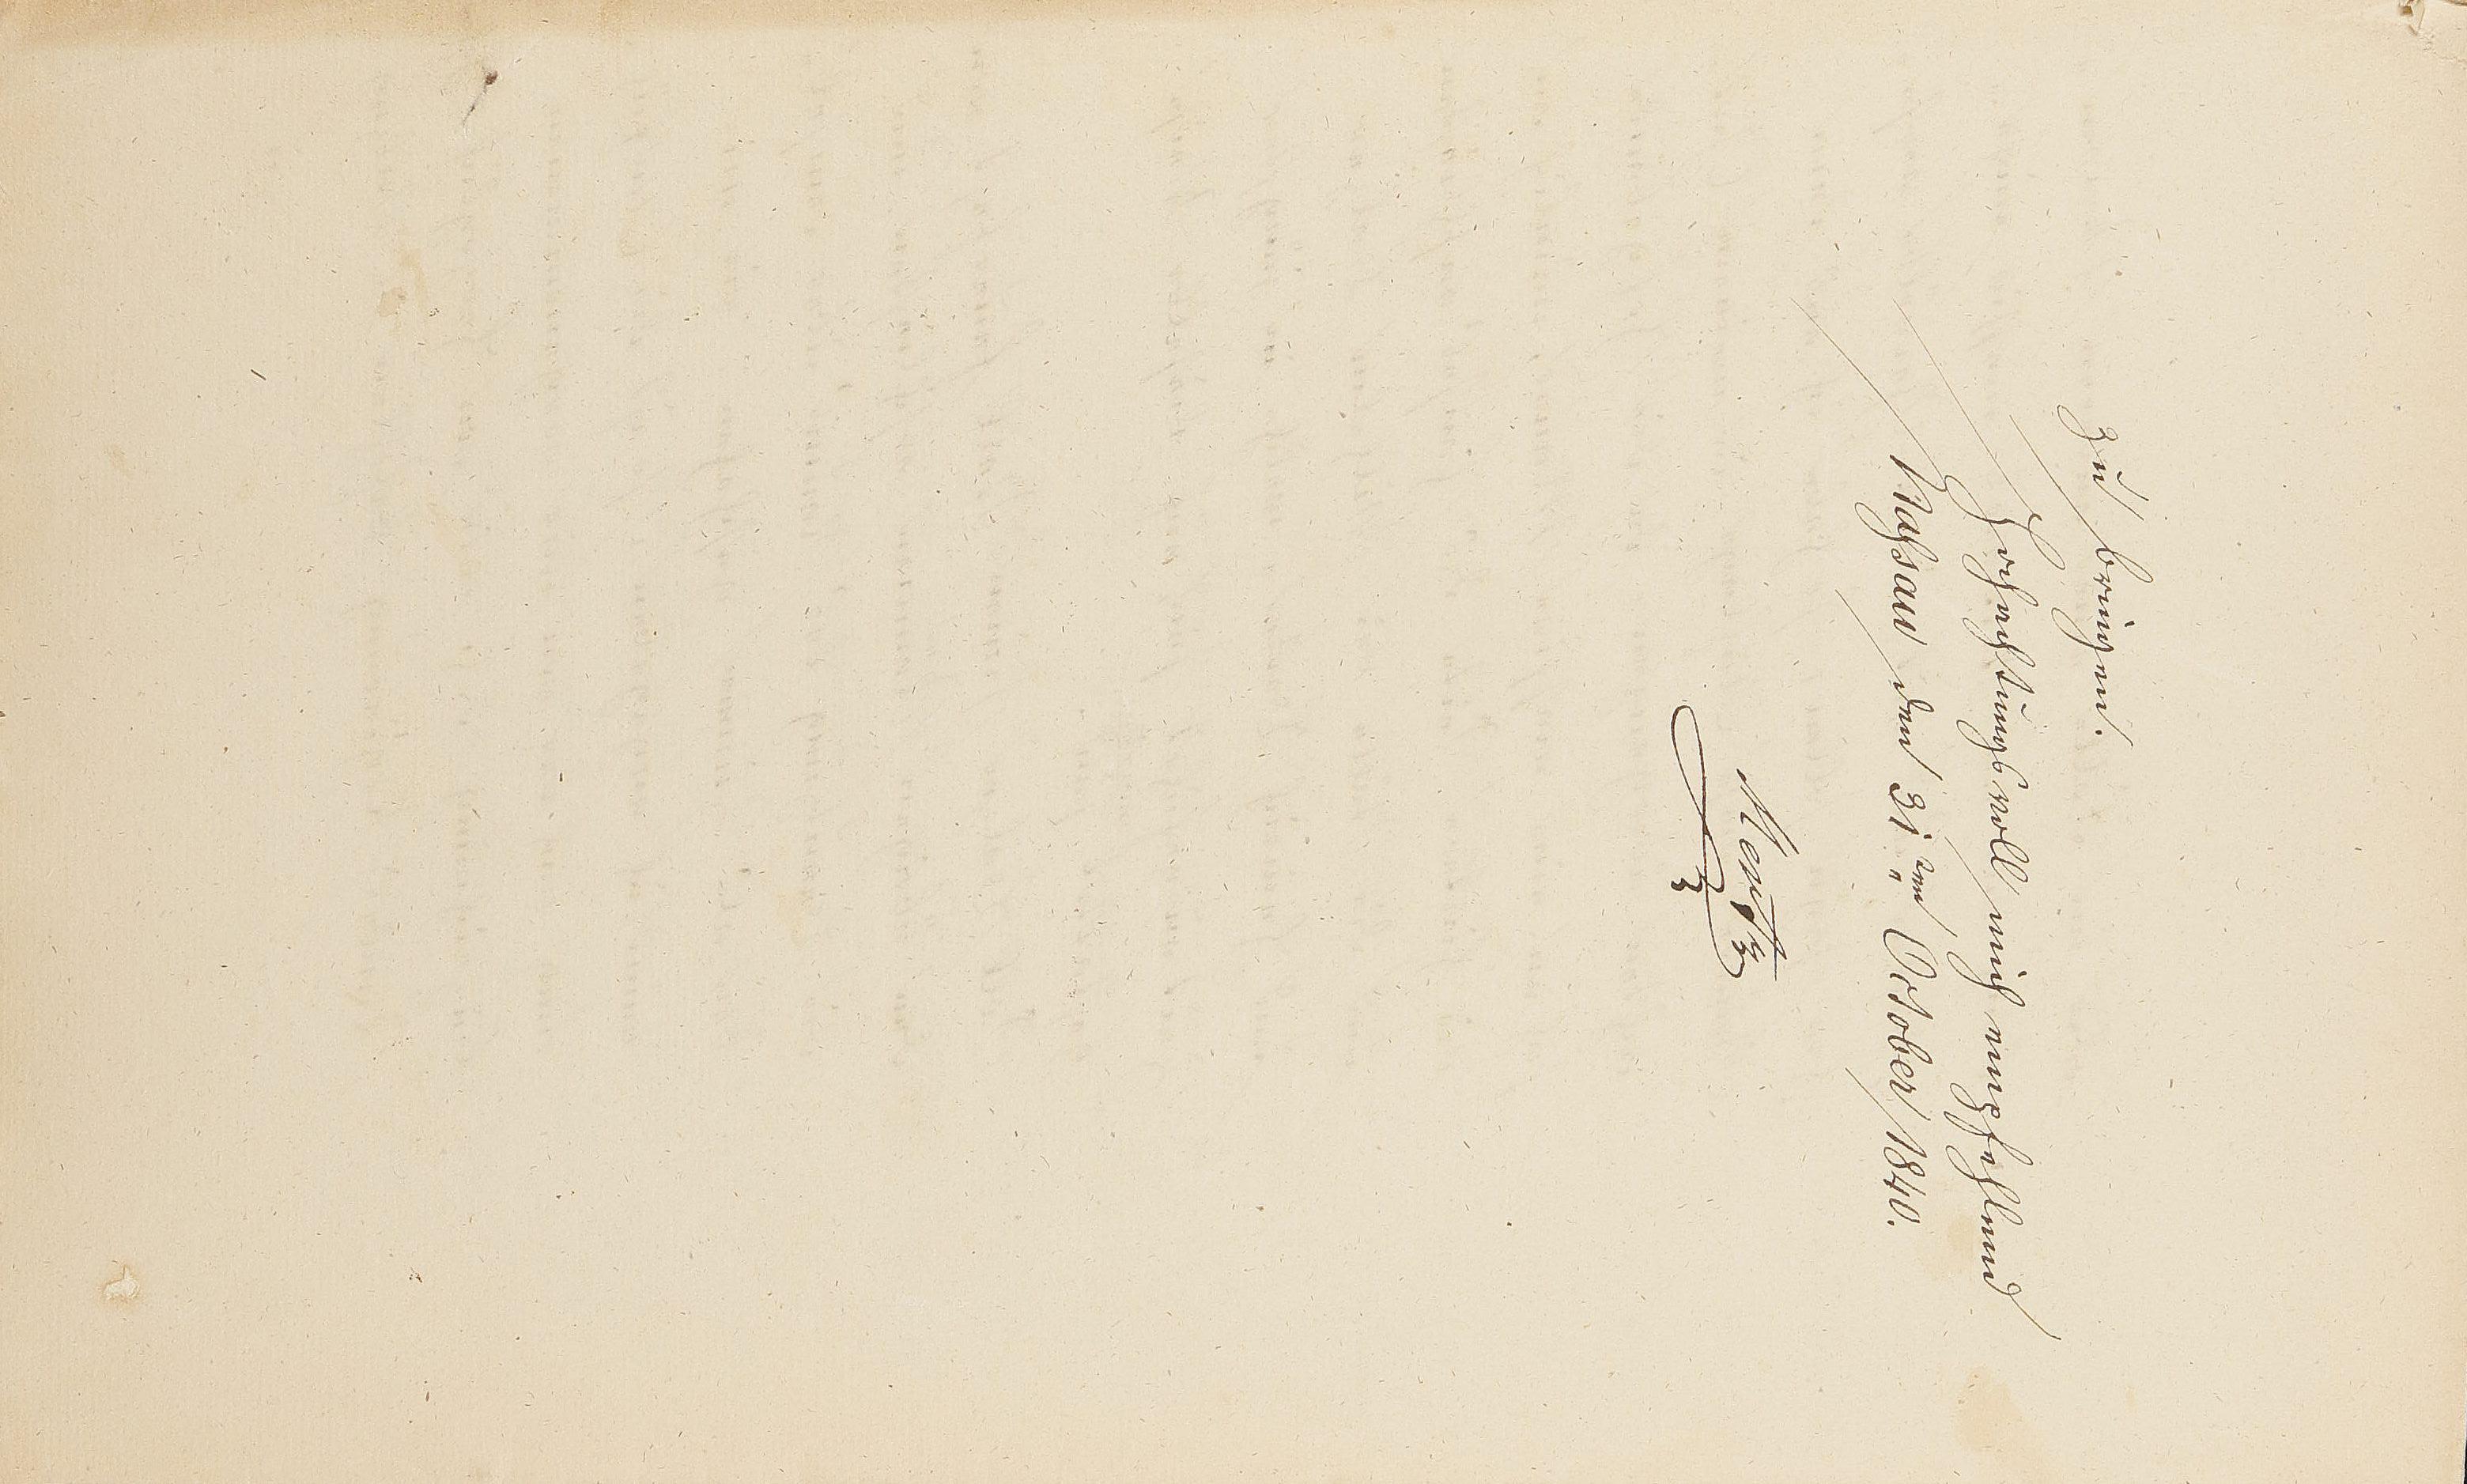 zu bringen.
Hochachtungsvoll mich empfehlend
Nassau den 31ten October 1840.
Mentz